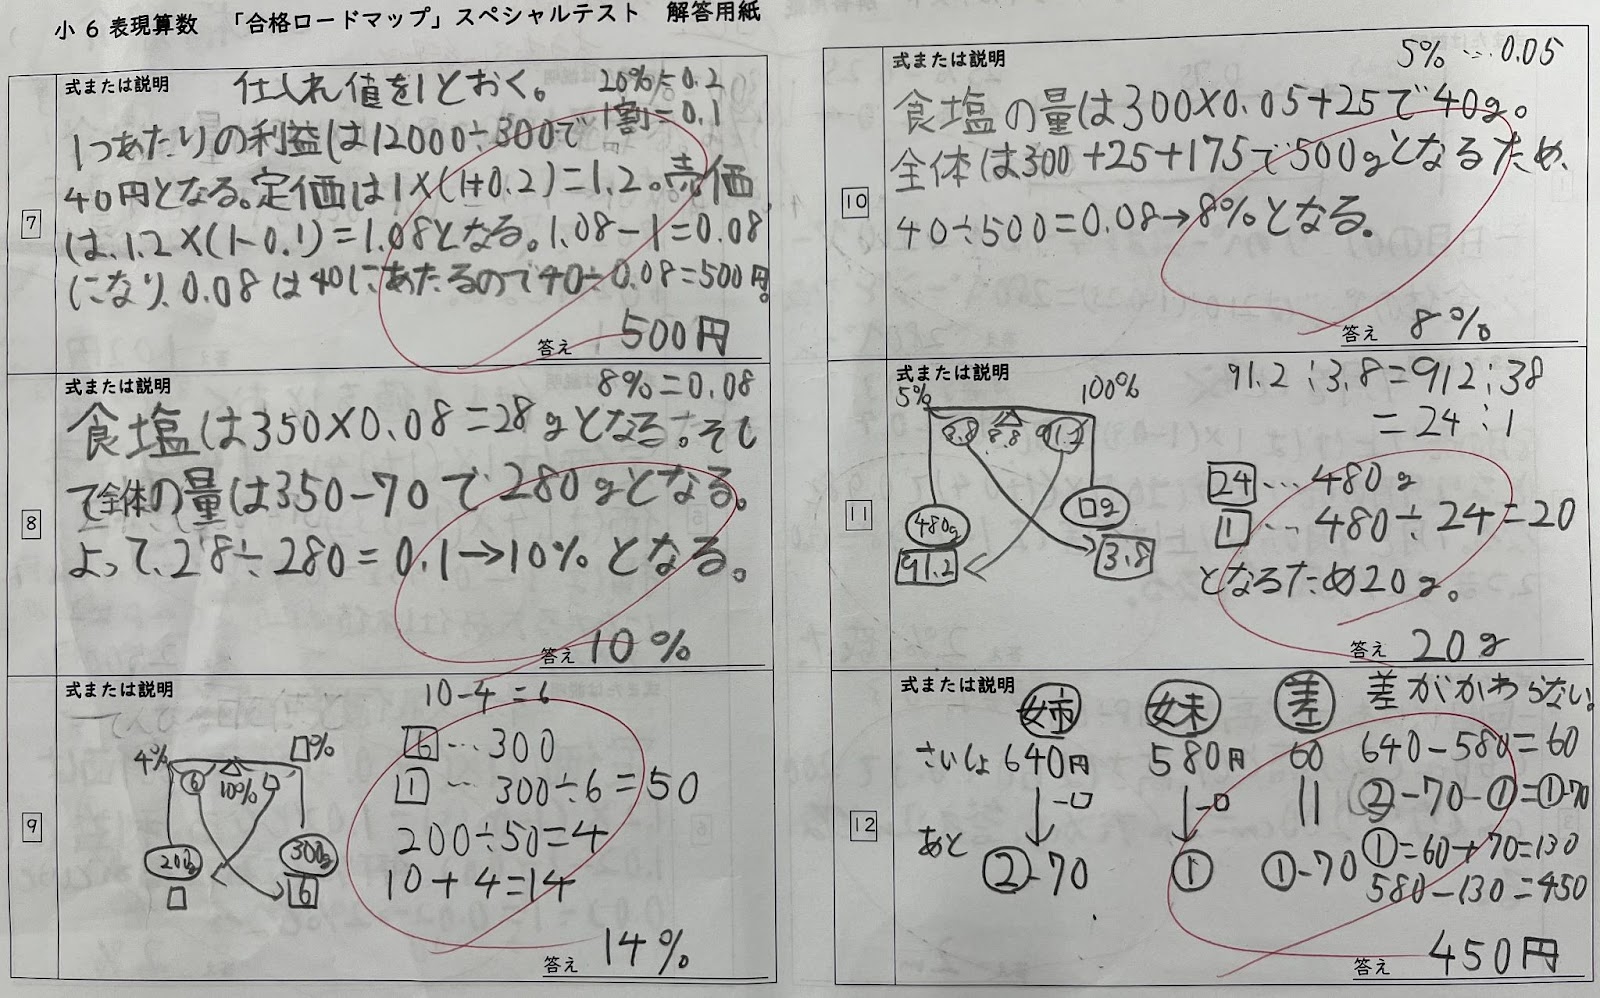 小6表現算数 「合格ロードマップ」スペシャルテスト 解答用紙
7
式または説明
仕入れ値を1とおく。 20%=0.2
1割=0.1
1つあたりの利益は12000÷300で
40円となる。定価は1×(1+0.2)=1.2。売価
は、1.2×(1-0.1)=1.08となる。1.08-1=0.08
になり、0.08は40にあたるので40÷0.08=500円。
答え 500円
8
式または説明
8%=0.08
食塩は350×0.08=28gとなる。そし
て全体の量は350-70で280gとなる。
よって、28÷280=0.1→10%となる。
答え 10%
9
式または説明
10-4=6
4% □%
⑥ 10% ○
200g 300g
□ 6
6…300
1…300÷6=50
200÷50=4
10+4=14
答え 14%
10
式または説明
5%…0.05
食塩の量は300×0.05+25で40g。
全体は300+25+175で500gとなるため、
40÷500=0.08→8%となる。
答え 8%
11
式または説明
5% 100%
3.8 8.8 91.2
480g □g
91.2 3.8
91.2:3.8=912:38
=24:1
24…480g
1…480÷24=20
となるため20g。
答え 20g
12
式または説明
姉 妹 差 差がかわらない。
さいしょ 640円 580円 60 640-580=60
↓-□ ↓-□ || ②-70-①=①-70
あと ②-70 ① ①-70 ①=60+70=130
580-130=450
答え 450円